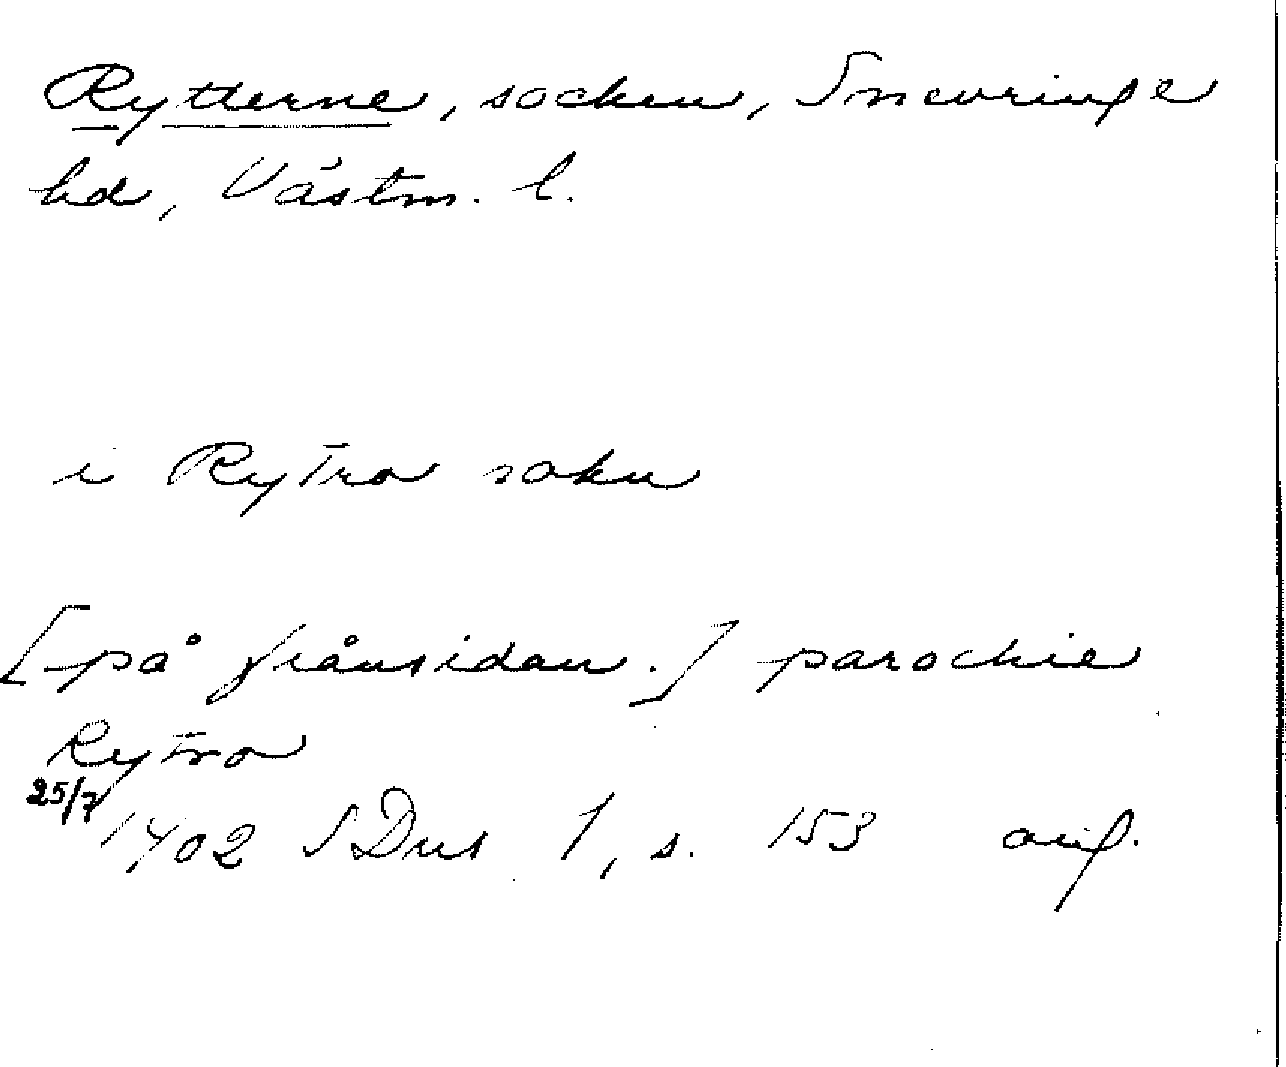 Rytterne, socken, Snevringe
hd, Västm. l.
i Rytro sokn
[på frånsidan.] parochie
Rytro
25/7 1402 SDns 1, s. 153 orig.